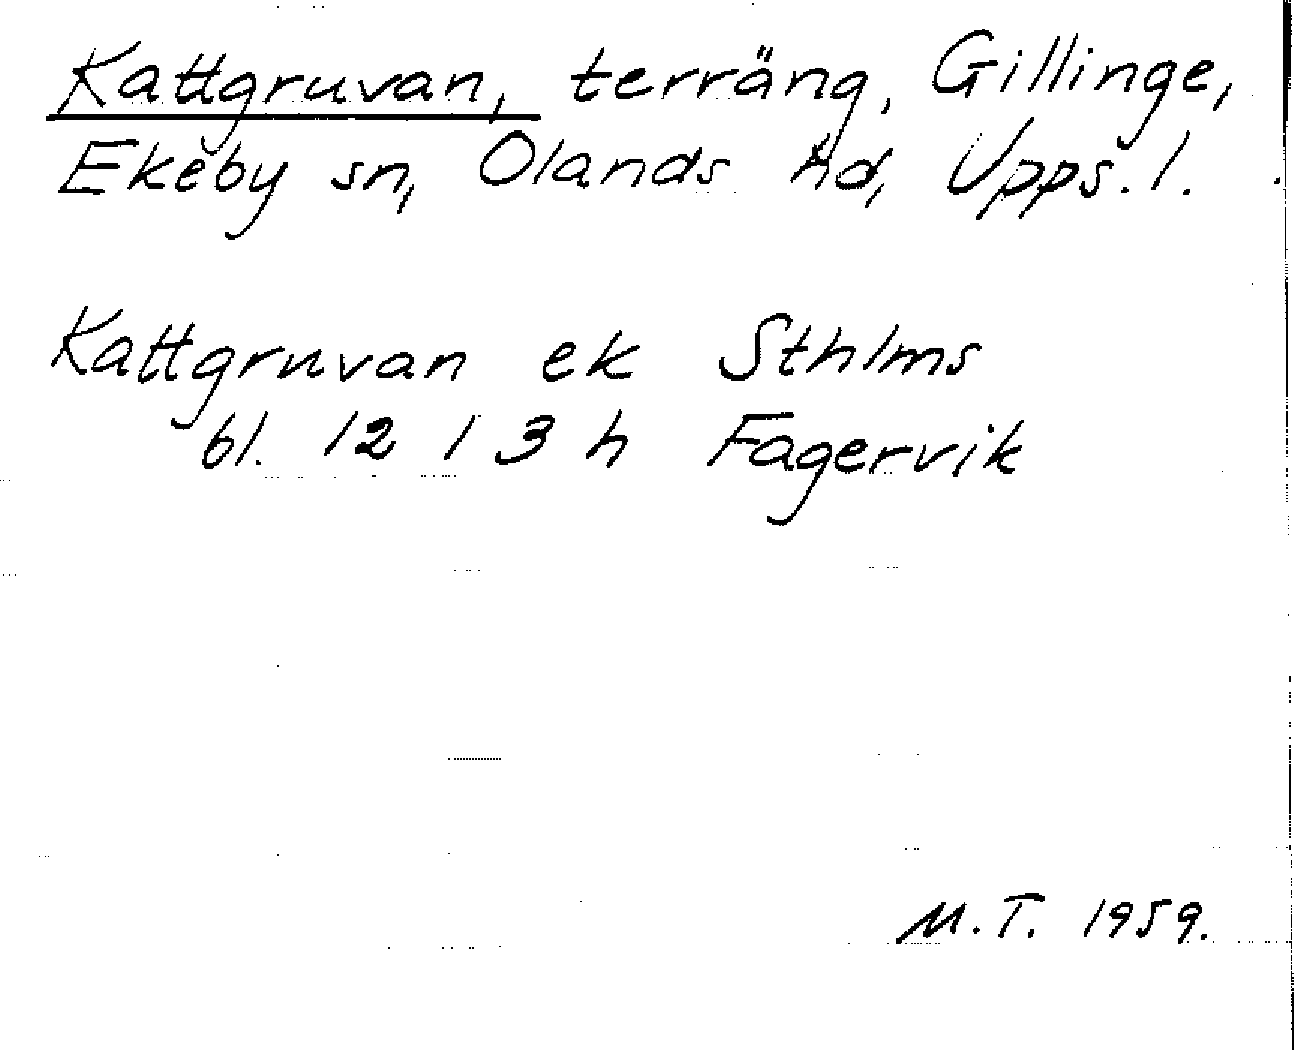 Kattgruvan, terräng, Gillinge,
Ekeby sn, Olands hd, Upps. l.
Kattgruvan ek Sthlms
bl. 12 1 3 h Fagervik
M.T. 1959.